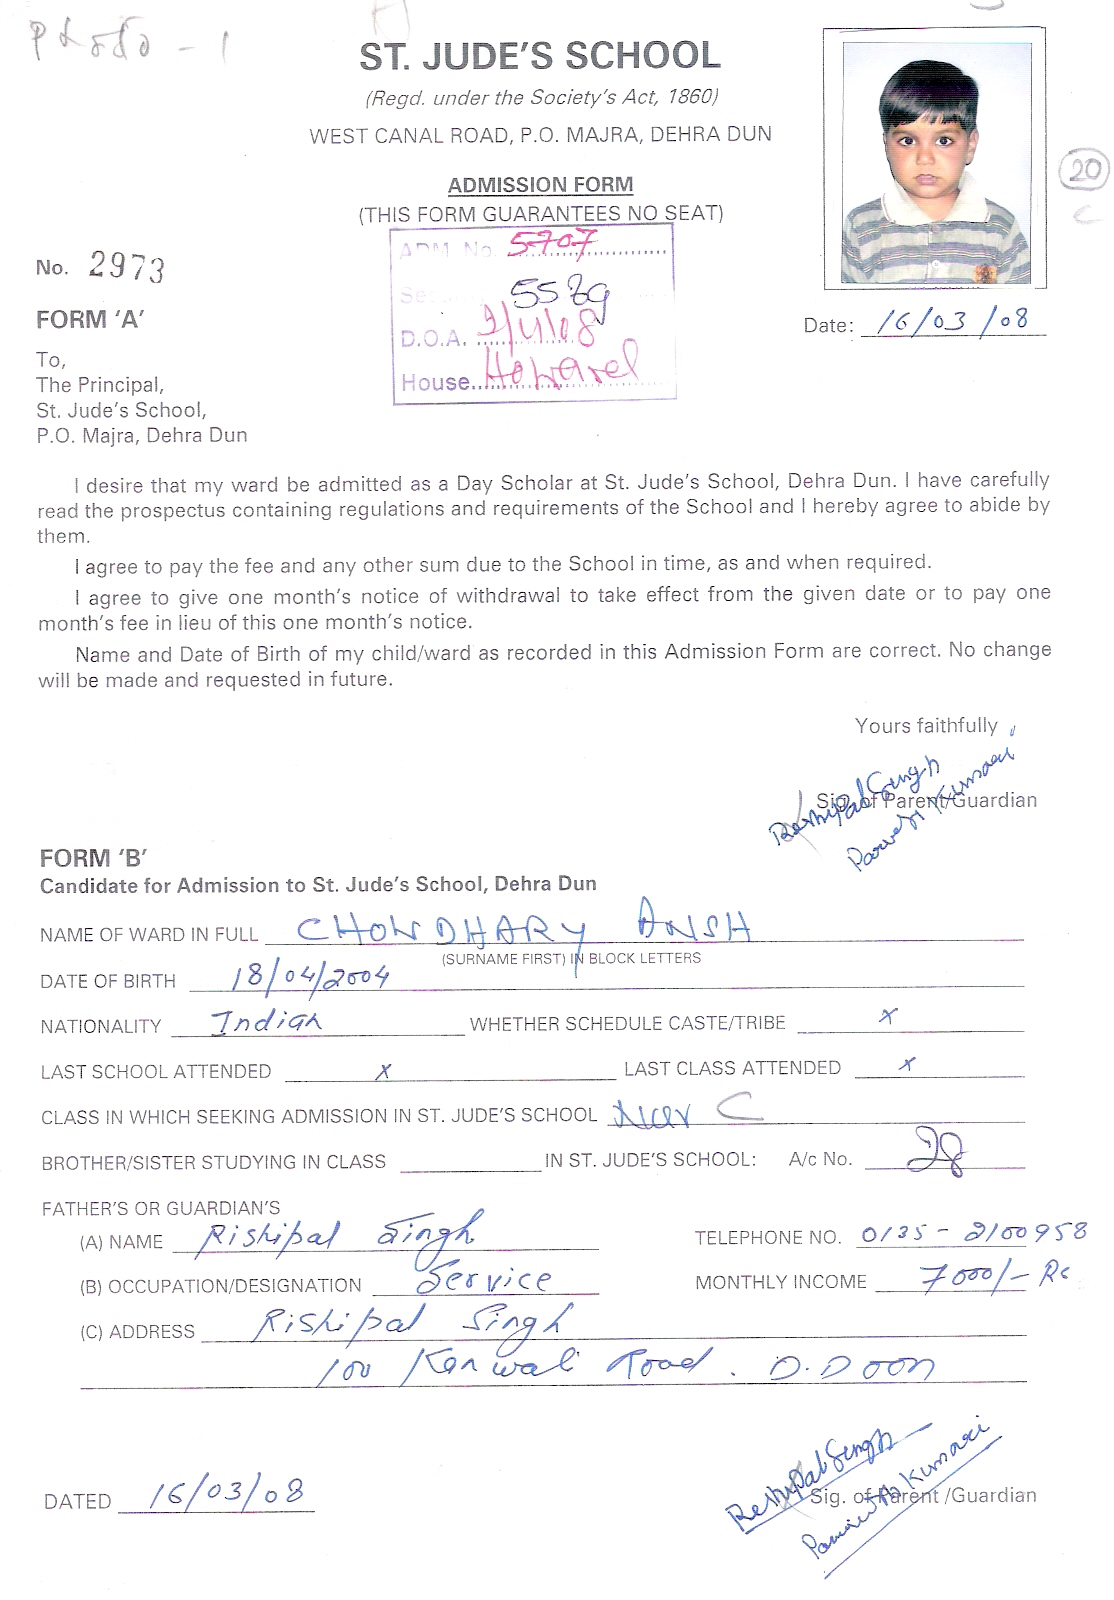 ST. JUDE'S SCHOOL
(Regd. under the Society's Act, 1860)
WEST CANAL ROAD, P.O. MAJRA, DEHRA DUN
20
C
ADMISSION FORM
(THIS FORM GUARANTEES NO SEAT)
ADM No. 5707
No. 2973
D.O.A.
House
FORM 'A'
Date: 16/03/08
To,
The Principal,
St. Jude's School,
P.O. Majra, Dehra Dun
I desire that my ward be admitted as a Day Scholar at St. Jude's School, Dehra Dun. I have carefully
read the prospectus containing regulations and requirements of the School and I hereby agree to abide by
them.
I agree to pay the fee and any other sum due to the School in time, as and when required.
I agree to give one month's notice of withdrawal to take effect from the given date or to pay one
month's fee in lieu of this one month's notice.
Name and Date of Birth of my child/ward as recorded in this Admission Form are correct. No change
will be made and requested in future.
Yours faithfully
Sig. of Parent/Guardian
FORM 'B'
Candidate for Admission to St. Jude's School, Dehra Dun
NAME OF WARD IN FULL CHOWDHARY ANSH
(SURNAME FIRST) IN BLOCK LETTERS
DATE OF BIRTH 18/04/2004
NATIONALITY Indian WHETHER SCHEDULE CASTE/TRIBE x
LAST SCHOOL ATTENDED x LAST CLASS ATTENDED x
CLASS IN WHICH SEEKING ADMISSION IN ST. JUDE'S SCHOOL Nur C
BROTHER/SISTER STUDYING IN CLASS IN ST. JUDE'S SCHOOL: A/c No.
FATHER'S OR GUARDIAN'S
(A) NAME Rishipal Singh TELEPHONE NO. 0135-2100958
(B) OCCUPATION/DESIGNATION Service MONTHLY INCOME 7000/- Rs
(C) ADDRESS Rishipal Singh
100 Kanwali Road. D.Doon
DATED 16/03/08
Sig. of Parent/Guardian